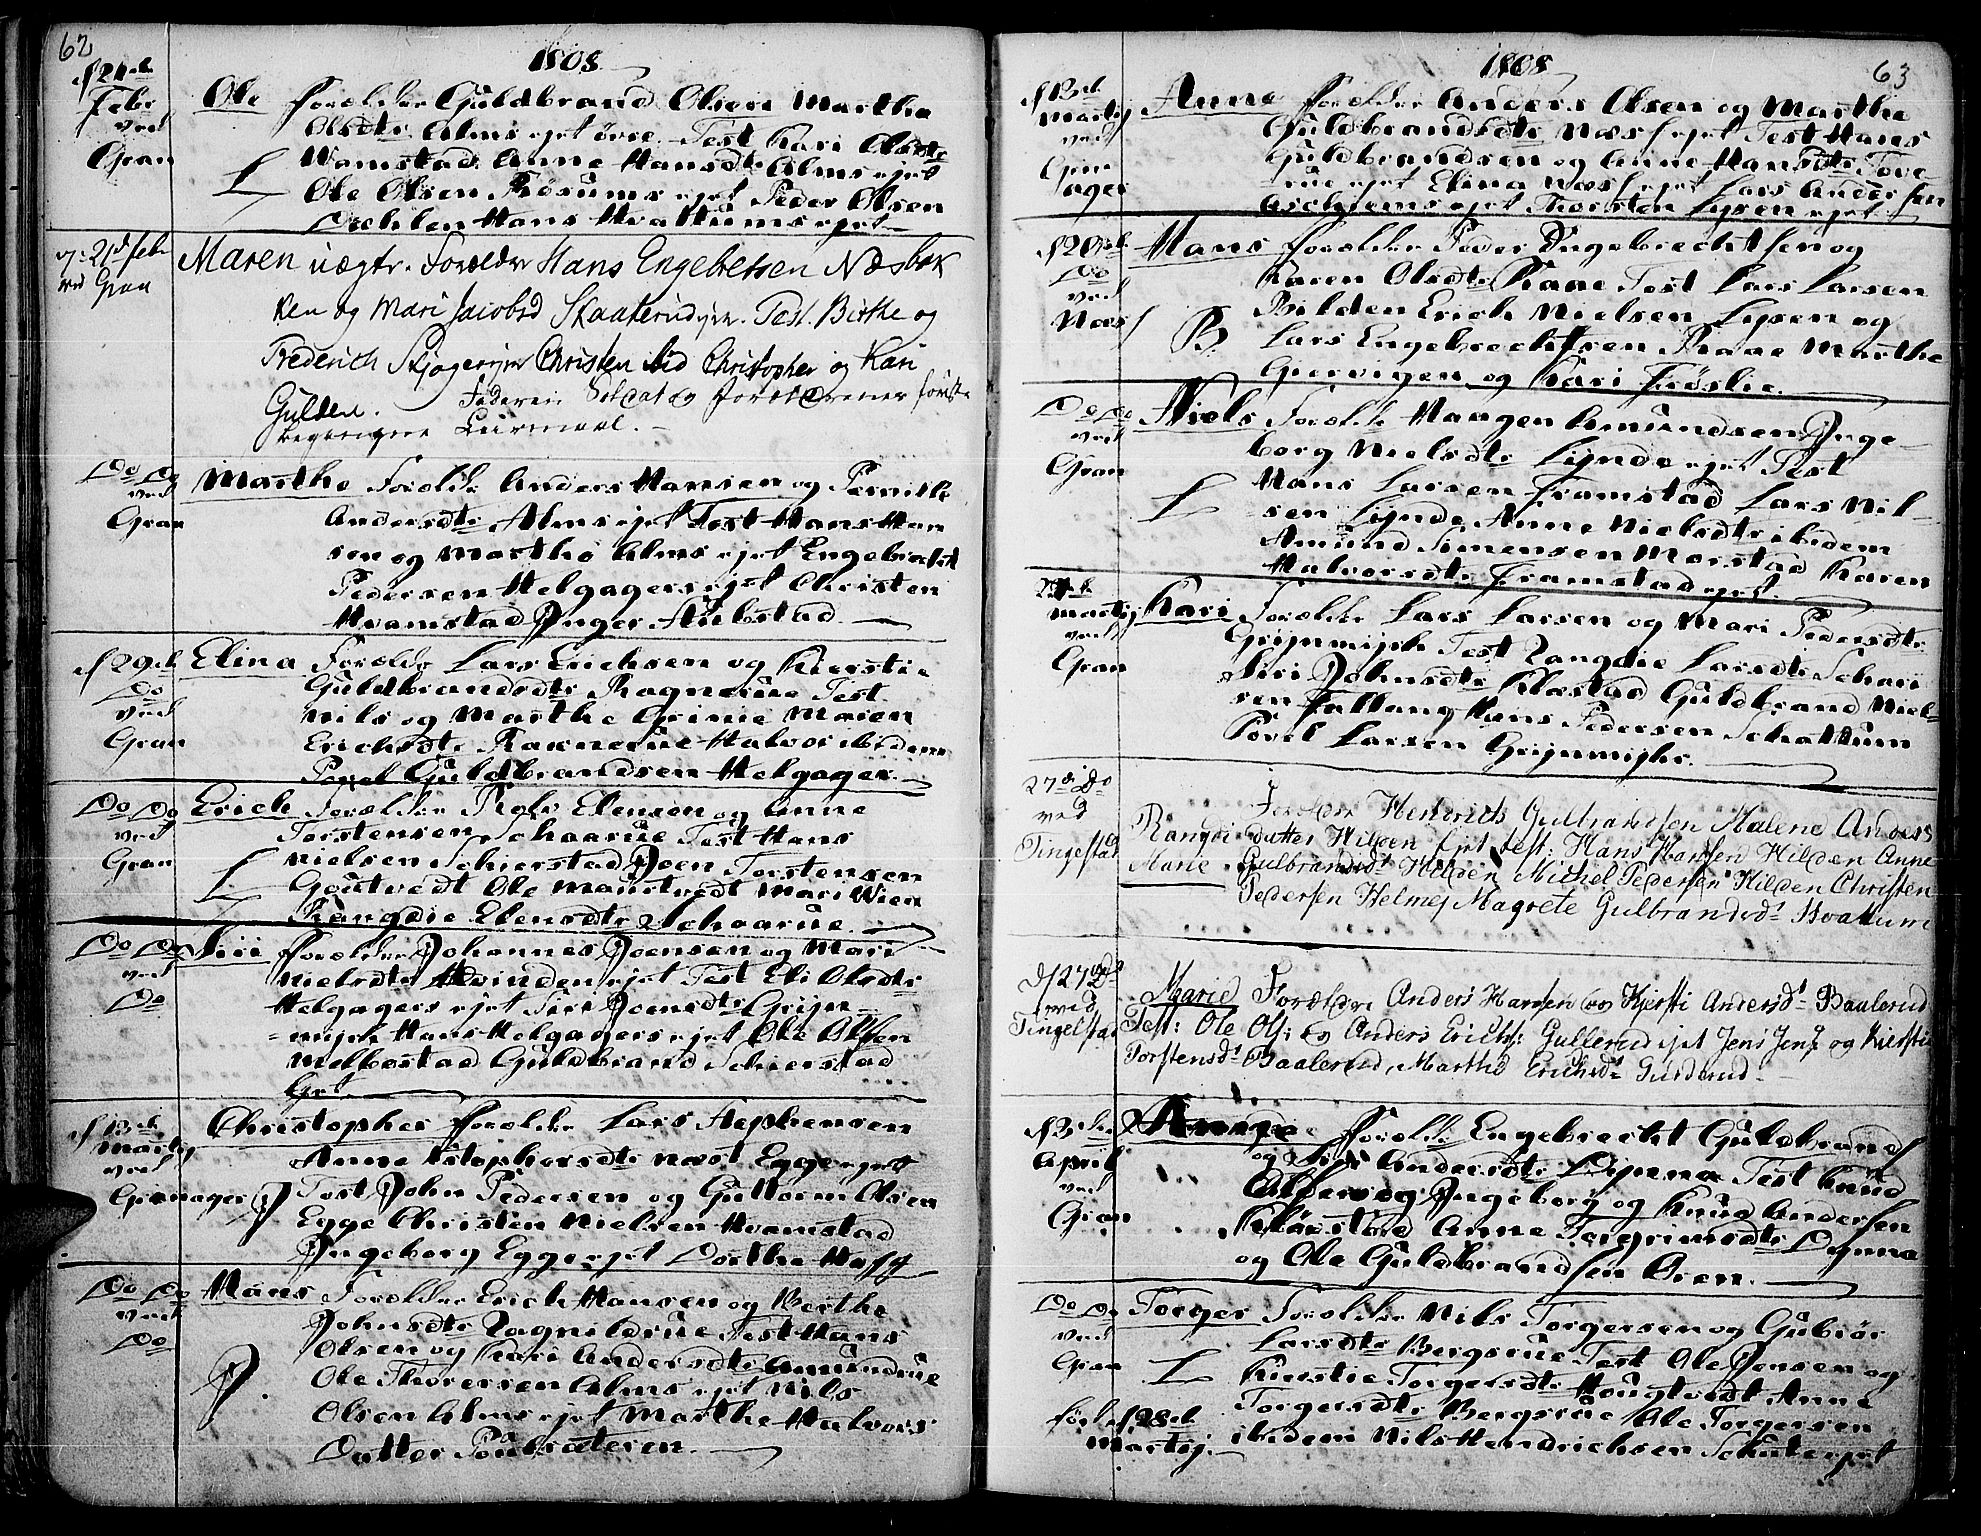 62
1808
d 21de Febr ved Gran
Ole Forældre Guldbrand Olsen Marthe
Olsdtr Alms ejet øvre Test Kari Olsdtr
Hvamstad Anne Hansdtr Alms ejet
L Ole Olsen Røsums ejet Peder Olsen
Dæhlen Hans Hvattums ejet
21d Feb ved Gran
Maren uægte. Forældre Hans Engebretsen Næsbak
ken og Mari Jacobsd Skaaterudejer. Test. Birthe og
Frederich Christen Christopher og Kari
Gulden. Faderen Soldat og Forældrenes første
begangne Leiermaal.
Do Do ved Gran
Marthe Forældre Anders Hansen og Pernille
Andersdtr Alms ejet Test Hans Han
sen og Marthe Alms ejet Engebrecht
Pedersen Helgagers ejet Christen
Hvamstad Inger Stubstad
d 29de Do ved Gran
Elina Forældre Lars Erichsen og Kiersti
Guldbrandsdtr Ragnerue Test
Nils og Marthe Grinie Maren
Erichsdtr Raknerue Halvor ibidem
Povel Guldbrandsen Helgager
Do Do ved Gran
Erich Forældre Rolv Elensen og Anne
Torstensen Schaarue Test Hans
Nielsen Schierstad Joen Torstensen
L Goutvedt Ole Maustvedt Mari Wien
Rangdie Elensdtr Schaarue
Do Do ved Do
Siri Forældre Johannes Joensen og Mari
Nielsdtr Hvinden ejet Test Eli Olsdtr
Helgagers ejet Siri Joensdtr Grijn-
mijch Hans Helgagers ejet Ole Olsen
Melbostad Guldbrand Schierstad
Ejet
d 13de Martij ved Granager
Christopher Forældre Lars Stephensen
Anne Istophersdtr næst Egge ejet
Test John Pedersen og Guttorm Olsen
Egge Christen Nielsen Hvamstad
Ingeborg Egge ejet Dorthe
Do Do ved Do
Hans Forældre Erich Hansen og Berthe
Johnsdtr Ragnildrue Test Hans
Olsen og Kari Andersdtr Amundrue
Ole Thoresen Alms ejet Nils
Olsen Alms ejet Marthe Halvors
Datter
63
1808
d 13de Martij ved Gran ager
Anne Forældre Anders Olsen og Marthe
Guldbrandsdtr Næs ejet Test Hans
Guldbrandsen og Anne Hansdtr Tove-
rue ejet Elina Næs ejet Lars Andersen
Aschiems ejet Thorsten Lysen ejet
d 20de Do ved Næss
Hans Forældre Peder Ingebrechtsen og
Karen Olsdtr Raae Test Lars Larsen
Bilden Erich Nielsen Lysen og
Lars Engebrechtsen Raae Marthe
Giervigen og Kari Frøslie
Do Do ved Gran
Niels Forældre Haagen Amundsen Inge-
borg Nielsdtr Lynde ejet Test
Hans Larsen Framstad Lars Nil-
L sen Lynde Anne Nielsdtr ibidem
Amund Simensen Morstad Karen
Halvorsdtr Framstad ejet
Martij ved Gran
Kari Forældre Lars Larsen og Mari Pedersdtr
Grijnmijch Test Rangdie Larsdtr Schari
Siri Johnsdtr Klæstad Guldbrand Niel-
sen Fallang Hans Pedersen Schattum
Povel Larsen Grijnmijchs
27de Do ved Tingelstad
Rangdi Marie
Forældre Henderich Gulbrandsen Malene Anders
datter Hilden Ejet Test: Hans Hansen Hilden Anne
Gulbrandsdt Hilden Michel Pedersen Hilden Christen
Pedersen Helmej Magrete Gulbrandsdt Hvattum
d 27de Do ved Tingelstad
Marie Forældre Anders Hansen og Kjersti Andersdt Baalerud
Test: Ole Ols: og Anders Erichs: Gullerud ejet Jens Jens og Kiersti
Torstensdt Baalerud, Marthe Erichsdt Gunderud
April ved Gran
Anne Forældre Engebrecht Guldbrands
og Siri Andersdtr Dynna Test Knud
og Ingeborg og Knud Andersen
Anne Torgrimsdtr Dynna
og Ole Guldbrandsen Bren
Do Do ved Gran
Torger Forældre Nils Torgersen og Gubiør
Larsdtr Bergsrue Test Ole Jensen og
L Kierstie Torgersdtr Hougtvedt Anne
Torgersdtr Bergsrue Ole Torgersen
ibidem Nils Hendrichsen ejet
født d 28de Martij